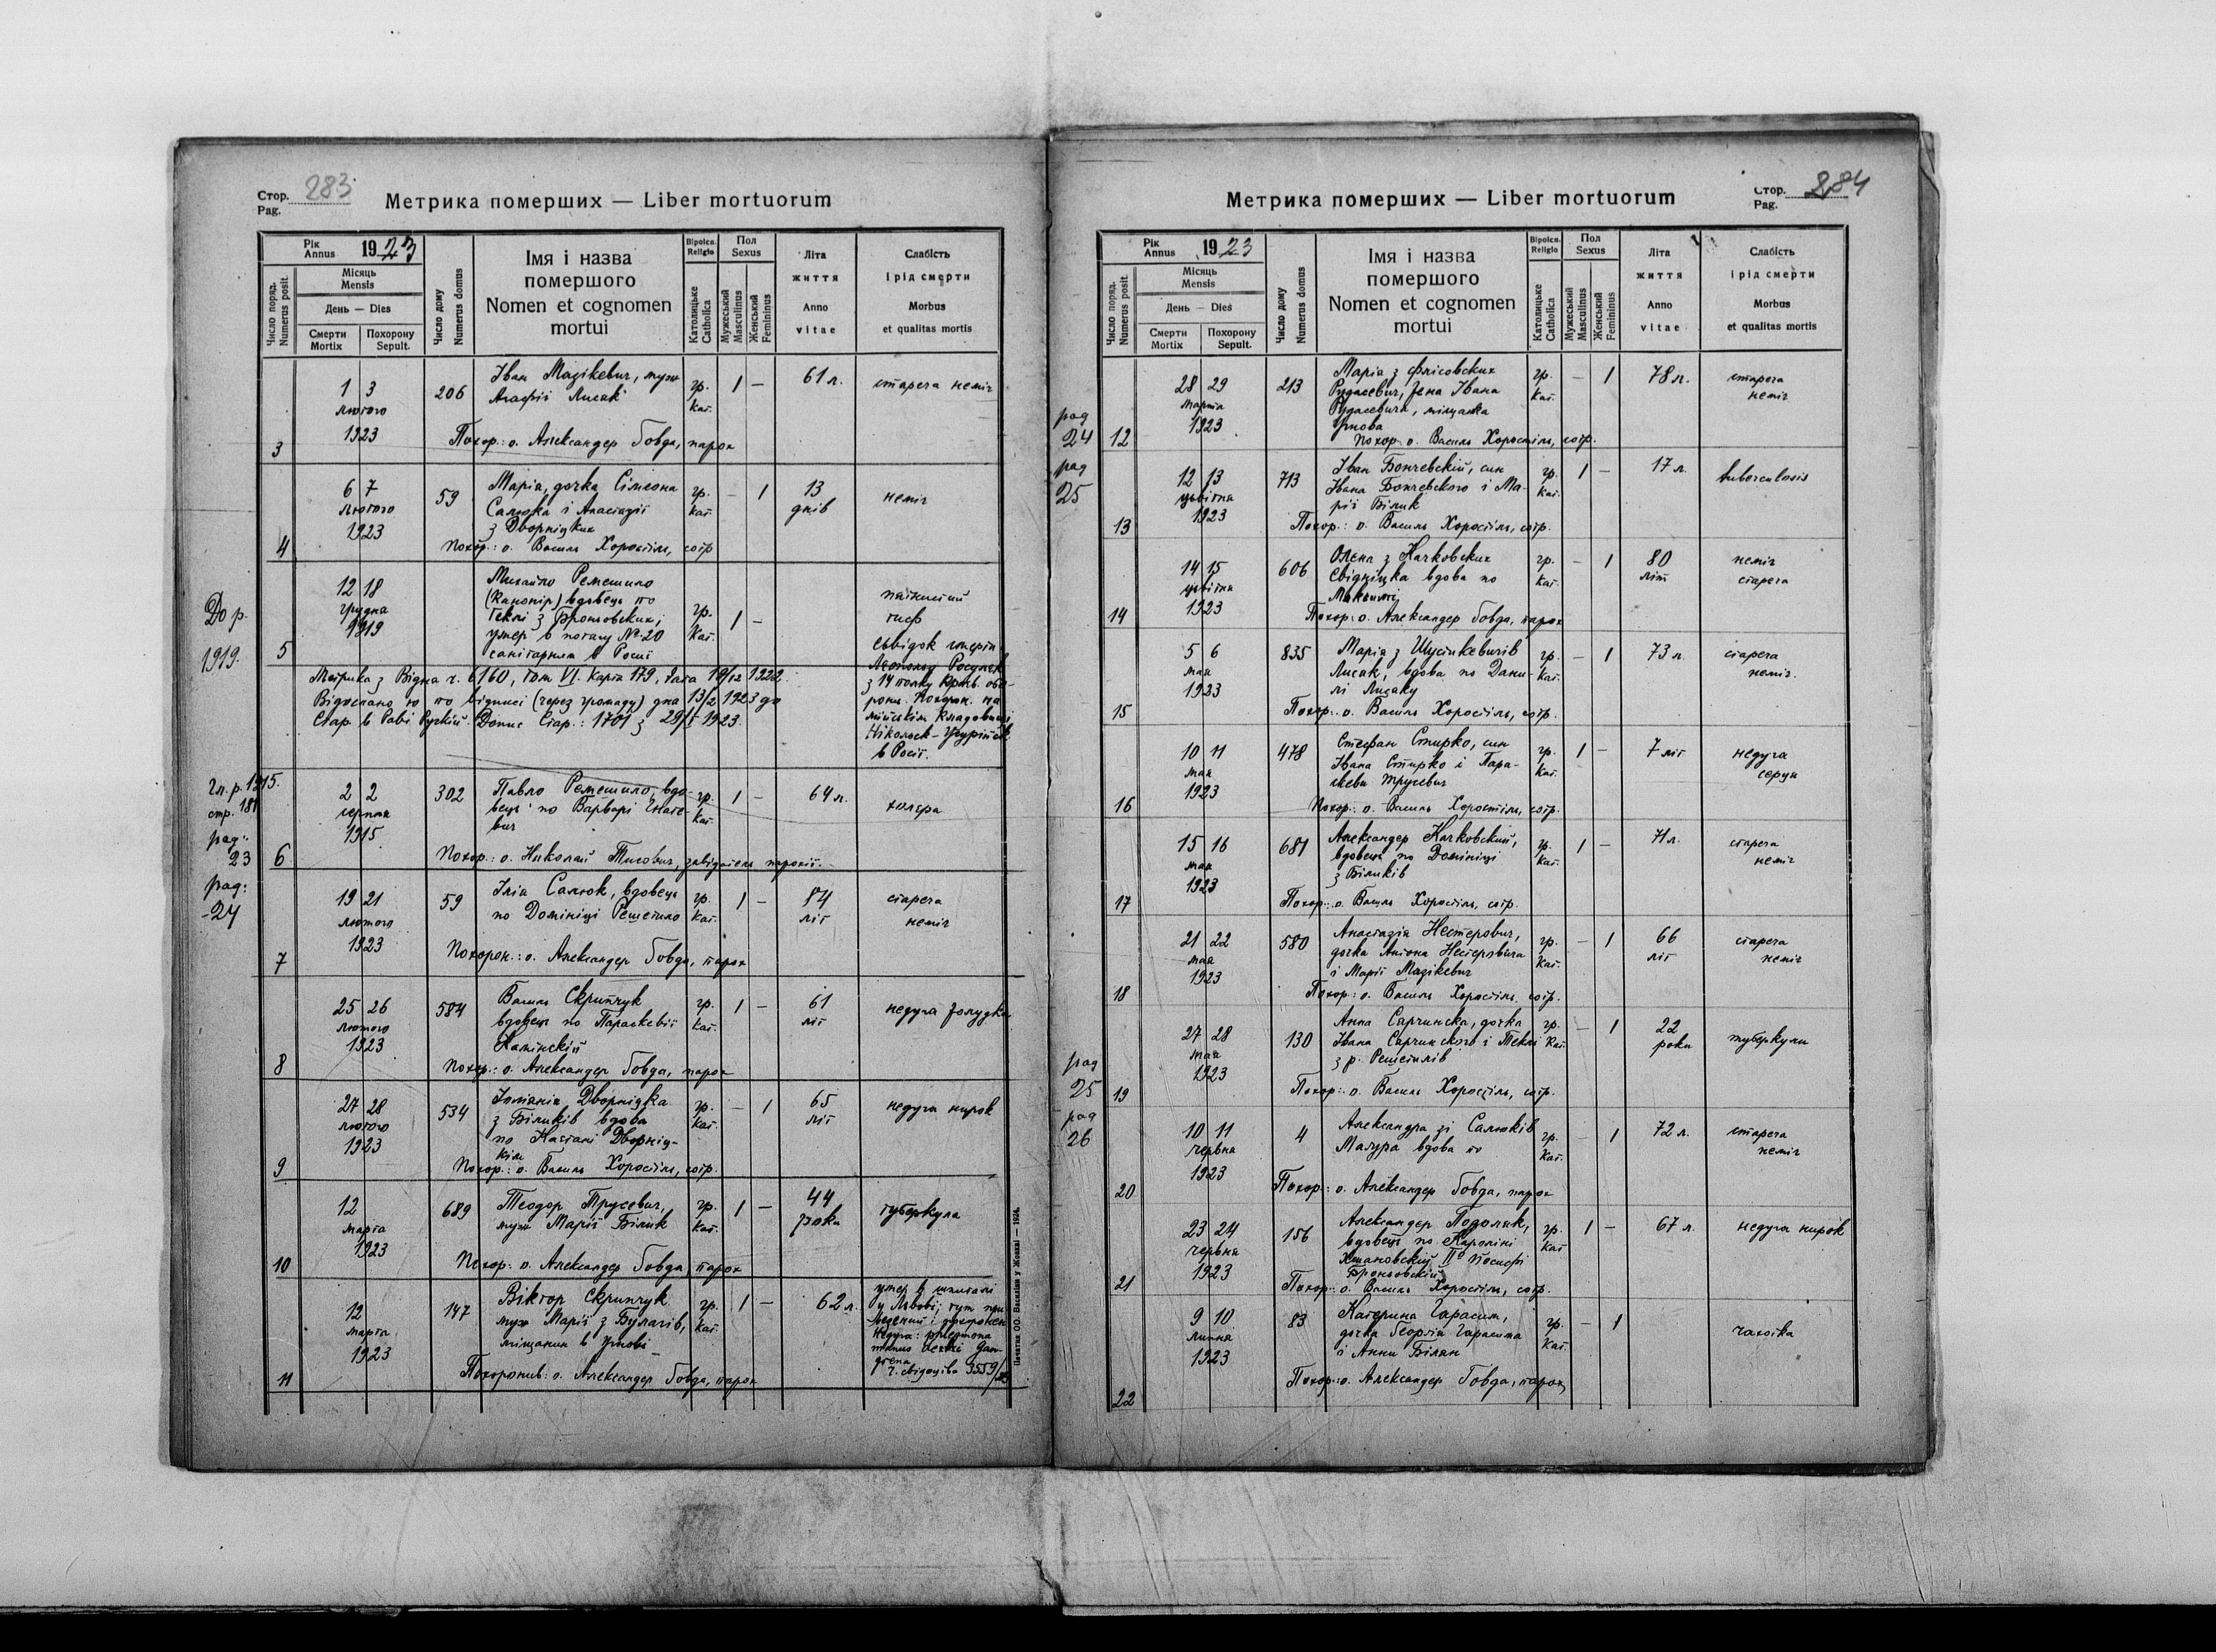 Стор. 283
Pag.
Метрика померших — Liber mortuorum
Рік
Annus
1923
Місяць
Mensis
День — Dies
Смерти
Mortix
Похорону
Sepult.
Число поряд.
Numerus posit.
Число дому
Numerus domus
Імя і назва
помершого
Nomen et cognomen
mortui
Віроісп.
Religio
Католицьке
Catholica
Пол
Sexus
Мужеський
Masculinus
Женський
Femininus
Літа
життя
Anno
vitae
Слабість
і рід смерти
Morbus
et qualitas mortis
3
1 3
лютого
1923
206
Іван Мазікевич, муж
Агафії Лисак
гр.
кат.
1 —
61 л.
старечa неміч
Похор.: о. Александер Говда, парох
4
6 7
лютого
1923
59
Марія, дочка Сімеона
Салюка і Анастазії
з Дворніцких
гр.
кат.
— 1
13
днів
неміч
Похор.: о. Василь Хоростіль, сотр.
До р.
1919.
5
12 18
грудня
1919
Михайло Ремешило
(канонір) вдовець по
Теклі з Броньовских;
умер в потягу № 20
санітарнім в Росиї
гр.
кат.
1 —
тиф
свідок смерти
з 14 полку
Нікольск-Усурійск
в Росиї.
Метрика з Відня ч. 6160, том VI. карта 179, дата 19/12 1922.
Відослано ю по відписі (через громаду) дня 13/2 1923 до
Стар. в Раві Рускій. Допис Стар.: 1701 з 29/I 1923.
Гл. р. 1915.
стр. 181
рад:
23
6
2 2
серпня
1915.
302
Павло Ремешило, вдо-
вець по Варварі Гнате-
вич
гр.
кат.
1 —
64 л.
холєра
Похор.: о. Николай Тисович, завідатель парохії.
рад:
-24
7
19 21
лютого
1923
59
Ілія Салюк, вдовець
по Домініці Решетило
гр.
кат.
1 —
84
літ
стареча
неміч
Похорон.: о. Александер Говда, парох
8
25 26
лютого
1923
584
Василь Скрипчук
вдовець по Параскевії
Камінскій
гр.
кат.
1 —
61
літ
недуга жолудка
Похор.: о. Александер Говда, парох
9
27 28
лютого
1923
534
Юлианія Дворніцка
з Біликів вдова
по Касіяні Дворніц-
кім
гр.
кат.
— 1
65
літ
недуга нирок
Похор.: о. Василь Хоростіль, сотр.
10
12
марта
1923
689
Теодор Трусевич,
муж Марії Білик
гр.
кат.
1 —
44
роки
туберкула
Похор.: о. Александер Говда, парох
11
12
марта
1923
147
Віктор Скрипчук
муж Марії з Булачів,
міщанин в Угнові
гр.
кат.
1 —
62 л.
умер в шпитали
у Львові; тут при-
везений і похорон.
Недуга: phlegmona
manus dextri Gan-
grena
ч. свідоцтва 3559/23
Похоронив: о. Александер Говда, парох
Печатня ОО. Василіян у Жовкві — 1924.
Стор. 284
Pag.
Метрика померших — Liber mortuorum
Рік
Annus
1923
Місяць
Mensis
День — Dies
Смерти
Mortix
Похорону
Sepult.
Число поряд.
Numerus posit.
Число дому
Numerus domus
Імя і назва
помершого
Nomen et cognomen
mortui
Віроісп.
Religio
Католицьке
Catholica
Пол
Sexus
Мужеський
Masculinus
Женський
Femininus
Літа
життя
Anno
vitae
Слабість
і рід смерти
Morbus
et qualitas mortis
рад
24
12
28 29
марта
1923
213
Марія з Флісовских
Рудасевич, жена Івана
Рудасевича, міщанка
Угнова
гр.
кат.
— 1
78 л.
стареча
неміч
Похор.: о. Василь Хоростіль, сотр.
рад
25
13
12 13
цвітня
1923
713
Іван Бончевскій, син
Івана Бончевского і Ма-
рії Білик
гр.
кат.
1 —
17 л.
tuberculosis
Похор.: о. Василь Хоростіль, сотр.
14
14 15
цвітня
1923
606
Олена з Качковских
Свідніцка вдова по
гр.
кат.
— 1
80
літ
неміч
стареча
Похор.: о. Александер Говда, парох
15
5 6
мая
1923
835
Марія з Шусткевичів
Лисак, вдова по Дани-
лі Лисаку
гр.
кат.
— 1
73 л.
стареча
неміч.
Похор.: о. Василь Хоростіль, сотр.
16
10 11
мая
1923
478
Стефан Стирко, син
Івана Стирко і Пара-
скеви Трусевич
гр.
кат.
1 —
7 літ
недуга
серця
Похор.: о. Василь Хоростіль, сотр.
17
15 16
мая
1923
681
Александер Качковский,
вдовець по Домініці
з Біликів
гр.
кат.
1 —
71 л.
стареча
неміч
Похор.: о. Василь Хоростіль, сотр.
18
21 22
мая
1923
580
Анастазія Нестерович,
дочка Антона Нестеровича
і Марії Мазікевич
гр.
кат.
— 1
66
літ
стареча
неміч
Похор.: о. Василь Хоростіль, сотр.
рад
25
19
27 28
мая
1923
130
Анна Сарчинска, дочка
Івана Сарчинского і Теклі
з р. Решетилів
гр.
кат.
— 1
22
роки
туберкули
Похор.: о. Василь Хоростіль, сотр.
рад
26
20
10 11
червня
1923
4
Александра зі Салюків
Мазура вдова по
гр.
кат.
— 1
72 л.
стареча
неміч
Похор.: о. Александер Говда, парох
21
23 24
червня
1923
156
Александер Подоляк,
вдовець по Каролині
II° Йосифі
Броньовскій
гр.
кат.
1 —
67 л.
недуга нирок
Похор.: о. Василь Хоростіль, сотр.
22
9 10
липня
1923
83
Катерина Гарасим,
дочка Георгія Гарасима
і Анни Білян
гр.
кат.
— 1
чахотка
Похор.: о. Александер Говда, парох